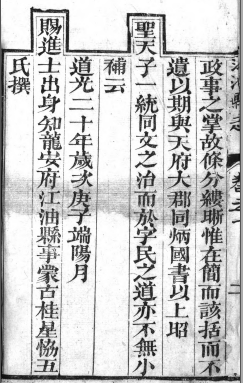 政事之掌故條分縷晰惟在簡而該括而不
遺以期與天府大郡同炳國書以上昭
聖天子一統同文之治而於字民之道亦不無小
補云
道光二十年歲次庚子端陽月
賜進士出身知龍安府江油縣事蒙古桂星恊五
氏撰